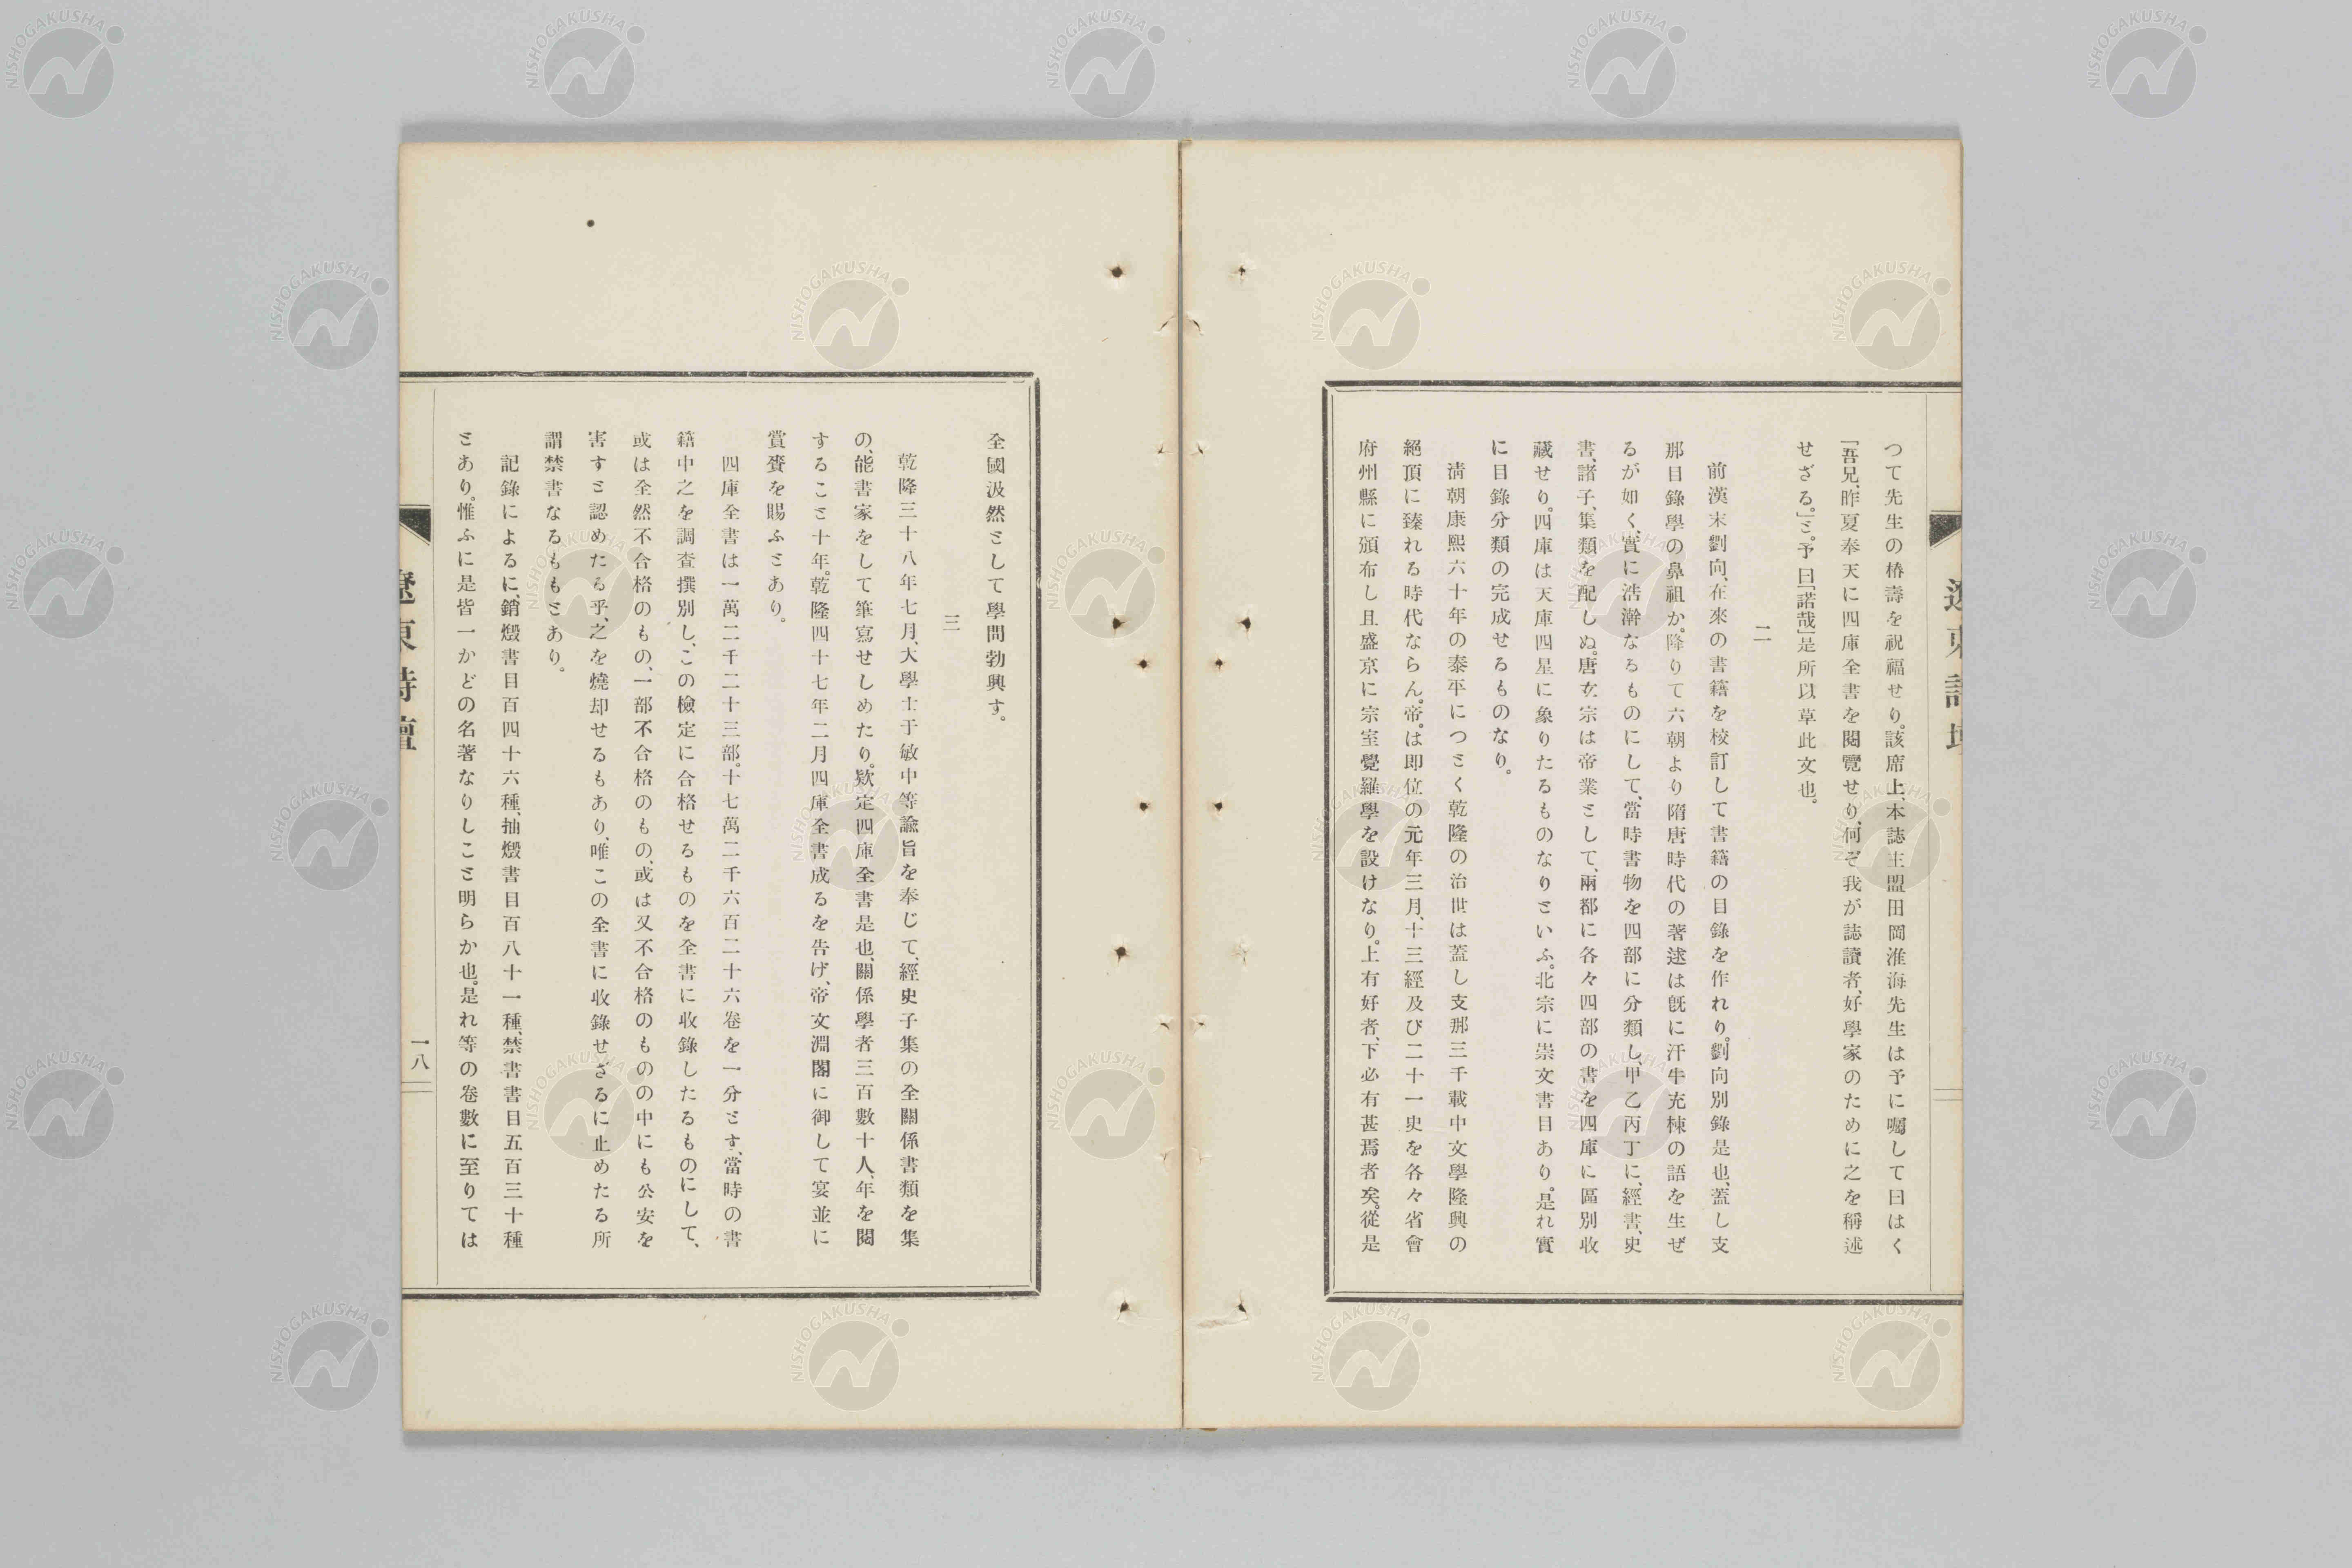 つて先生の椿壽を祝福せり。該席上、本誌主盟田岡淮海先生は予に囑して曰はく
「吾兄、昨夏奉天に四庫全書を閱覽せり、何ぞ我が誌讀者、好學家のために之を稱述
せざる。」と。予曰「諾哉」是所以草此文也。
二
前漢末劉向、在來の書籍を校訂して書籍の目錄を作れり。劉向別錄是也、蓋し支
那目錄學の鼻祖か。降りて六朝より隋唐時代の著逑は旣に汗牛充棟の語を生ぜ
るが如く、實に浩澣なるものにして、當時書物を四部に分類し、甲乙丙丁に、經書、史
書、諸子、集類を配しぬ。唐玄宗は帝業として、兩都に各々四部の書を四庫に區別收
藏せり。四庫は天庫四星に象りたるものなりといふ。北宗に崇文書目あり。是れ實
に目錄分類の完成せるものなり。
淸朝康熙六十年の泰平につとく乾隆の治世は蓋し支那三千載中文學隆興の
絕頂に臻れる時代ならん。帝。は即位の元年三月、十三經及び二十一史を各々省會
府州縣に頒布し且盛京に宗室覺羅學を設けなり。上有好者、下必有甚焉者矣。從是
全國汲然として學問勃興す。
三
乾隆三十八年七月、大學士于敏中等諭旨を奉じて、經史子集の全關係書類を集
の、能書家をして筆寫せしめたり。欽定四庫全書是也、關係學者三百數十人、年を閱
すること十年。乾隆四十七年二月四庫全書成るを告げ、帝文淵閣に御して宴並に
賞賚を賜ふとあり。
四庫全書は一萬二千二十三部。十七萬二千六百二十六卷を一分とす、當時の書
籍中之を調査撰別し、この檢定に合格せるものを全書に收錄したるものにして、
或は全然不合格のもの、一部不合格のもの、或は又不合格のものの中にも公安を
害すと認めたる乎、之を燒却せるもあり、唯この全書に收錄せざるに止めたる所
謂禁書なるももとあり。
記錄によるに、銷燬書目百四十六種、抽燬書目百八十一種、禁書書目五百三十種
とあり。惟ふに是皆一かどの名著なりしこと明らか也。是れ等の卷數に至りては
遼東詩壇
一八